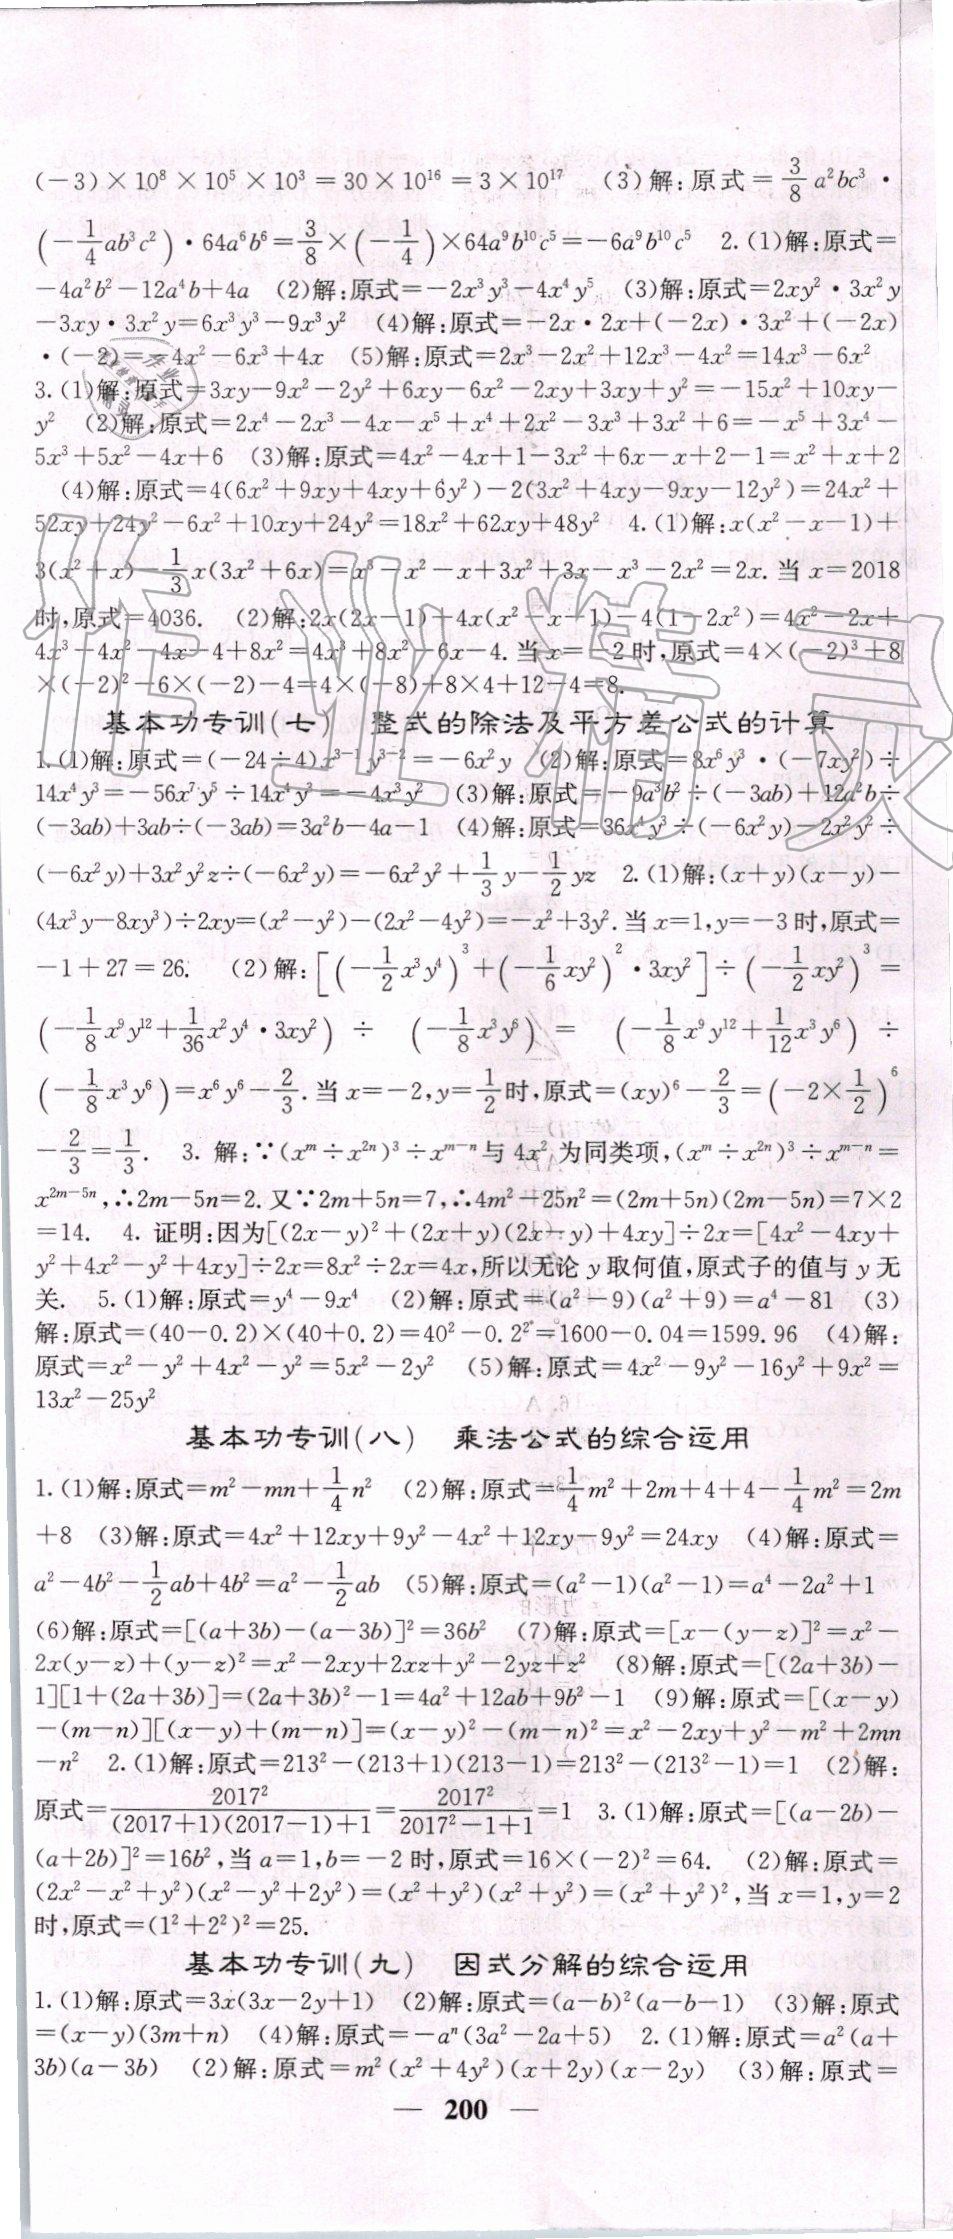 (－3)×10⁸×10⁵×10³＝30×10¹⁶＝3×10¹⁷ (3)解:原式＝3/8 a²bc³·
(－1/4 ab³c²)·64a⁶b⁶＝3/8×(－1/4)×64a⁹b¹⁰c⁵＝－6a⁹b¹⁰c⁵ 2.(1)解:原式＝
－4a²b²－12a⁴b＋4a (2)解:原式＝－2x³y³－4x⁴y⁵ (3)解:原式＝2xy²·3x²y
－3xy·3x²y＝6x³y³－9x³y² (4)解:原式＝－2x·2x＋(－2x)·3x²＋(－2x)
·(－2)＝－4x²－6x³＋4x (5)解:原式＝2x³－2x²＋12x³－4x²＝14x³－6x²
3.(1)解:原式＝3xy－9x²－2y²＋6xy－6x²－2xy＋3xy＋y²＝－15x²＋10xy－
y² (2)解:原式＝2x⁴－2x³－4x－x⁵＋x⁴＋2x²－3x³＋3x²＋6＝－x⁵＋3x⁴－
5x³＋5x²－4x＋6 (3)解:原式＝4x²－4x＋1－3x²＋6x－x＋2－1＝x²＋x＋2
(4)解:原式＝4(6x²＋9xy＋4xy＋6y²)－2(3x²＋4xy－9xy－12y²)＝24x²＋
52xy＋24y²－6x²＋10xy＋24y²＝18x²＋62xy＋48y² 4.(1)解:x(x²－x－1)＋
3(x²＋x)－1/3 x(3x²＋6x)＝x³－x²－x＋3x²＋3x－x³－2x²＝2x.当x＝2018
时,原式＝4036. (2)解:2x(2x－1)＋4x(x²－x－1)－4(1－2x²)＝4x²－2x＋
4x³－4x²－4x－4＋8x²＝4x³＋8x²－6x－4.当x＝－2时,原式＝4×(－2)³＋8
×(－2)²－6×(－2)－4＝4×(－8)＋8×4＋12－4＝8.
基本功专训(七) 整式的除法及平方差公式的计算
1.(1)解:原式＝(－24÷4)x³⁻¹y³⁻²＝－6x²y (2)解:原式＝8x⁶y³·(－7xy²)÷
14x⁴y³＝－56x⁷y⁵÷14x⁴y³＝－4x³y² (3)解:原式＝－9a³b²÷(－3ab)＋12a²b÷
(－3ab)＋3ab÷(－3ab)＝3a²b－4a－1 (4)解:原式＝36x⁴y³÷(－6x²y)－2x²y²÷
(－6x²y)＋3x²y²z÷(－6x²y)＝－6x²y²＋1/3 y－1/2 yz 2.(1)解:(x＋y)(x－y)－
(4x³y－8xy³)÷2xy＝(x²－y²)－(2x²－4y²)＝－x²＋3y².当x＝1,y＝－3时,原式＝
－1＋27＝26. (2)解:[(－1/2 x³y⁴)³＋(－1/6 xy²)²·3xy²]÷(－1/2 xy²)³＝
(－1/8 x⁹y¹²＋1/36 x²y⁴·3xy²)÷(－1/8 x³y⁶)＝(－1/8 x⁹y¹²＋1/12 x³y⁶)÷
(－1/8 x³y⁶)＝x⁶y⁶－2/3.当x＝－2,y＝1/2时,原式＝(xy)⁶－2/3＝(－2×1/2)⁶
－2/3＝1/3. 3. 解:∵(xᵐ÷x²ⁿ)³÷xᵐ⁻ⁿ与4x²为同类项,(xᵐ÷x²ⁿ)³÷xᵐ⁻ⁿ＝
x²ᵐ⁻⁵ⁿ,∴2m－5n＝2.又∵2m＋5n＝7,∴4m²－25n²＝(2m＋5n)(2m－5n)＝7×2
＝14. 4. 证明:因为[(2x－y)²＋(2x＋y)(2x－y)＋4xy]÷2x＝[4x²－4xy＋
y²＋4x²－y²＋4xy]÷2x＝8x²÷2x＝4x,所以无论y取何值,原式子的值与y无
关. 5.(1)解:原式＝y⁴－9x⁴ (2)解:原式＝(a²－9)(a²＋9)＝a⁴－81 (3)
解:原式＝(40－0.2)×(40＋0.2)＝40²－0.2²＝1600－0.04＝1599.96 (4)解:
原式＝x²－y²＋4x²－y²＝5x²－2y² (5)解:原式＝4x²－9y²－16y²＋9x²＝
13x²－25y²
基本功专训(八) 乘法公式的综合运用
1.(1)解:原式＝m²－mn＋1/4 n² (2)解:原式＝1/4 m²＋2m＋4＋4－1/4 m²＝2m
＋8 (3)解:原式＝4x²＋12xy＋9y²－4x²＋12xy－9y²＝24xy (4)解:原式＝
a²－4b²－1/2 ab＋4b²＝a²－1/2 ab (5)解:原式＝(a²－1)(a²－1)＝a⁴－2a²＋1
(6)解:原式＝[(a＋3b)－(a－3b)]²＝36b² (7)解:原式＝[x－(y－z)]²＝x²－
2x(y－z)＋(y－z)²＝x²－2xy＋2xz＋y²－2yz＋z² (8)解:原式＝[(2a＋3b)－
1][1＋(2a＋3b)]＝(2a＋3b)²－1＝4a²＋12ab＋9b²－1 (9)解:原式＝[(x－y)
－(m－n)][(x－y)＋(m－n)]＝(x－y)²－(m－n)²＝x²－2xy＋y²－m²＋2mn
－n² 2.(1)解:原式＝213²－(213＋1)(213－1)＝213²－(213²－1)＝1 (2)解:
原式＝2017²/((2017＋1)(2017－1)＋1)＝2017²/(2017²－1＋1)＝1 3.(1)解:原式＝[(a－2b)－
(a＋2b)]²＝16b²,当a＝1,b＝－2时,原式＝16×(－2)²＝64. (2)解:原式＝
(2x²－x²＋y²)(x²－y²＋2y²)＝(x²＋y²)(x²＋y²)＝(x²＋y²)²,当x＝1,y＝2
时,原式＝(1²＋2²)²＝25.
基本功专训(九) 因式分解的综合运用
1.(1)解:原式＝3x(3x－2y＋1) (2)解:原式＝(a－b)²(a－b－1) (3)解:原式
＝(x－y)(3m＋n) (4)解:原式＝－aⁿ(3a²－2a＋5) 2.(1)解:原式＝a²(a＋
3b)(a－3b) (2)解:原式＝m²(x²＋4y²)(x＋2y)(x－2y) (3)解:原式＝
— 200 —
作业精灵